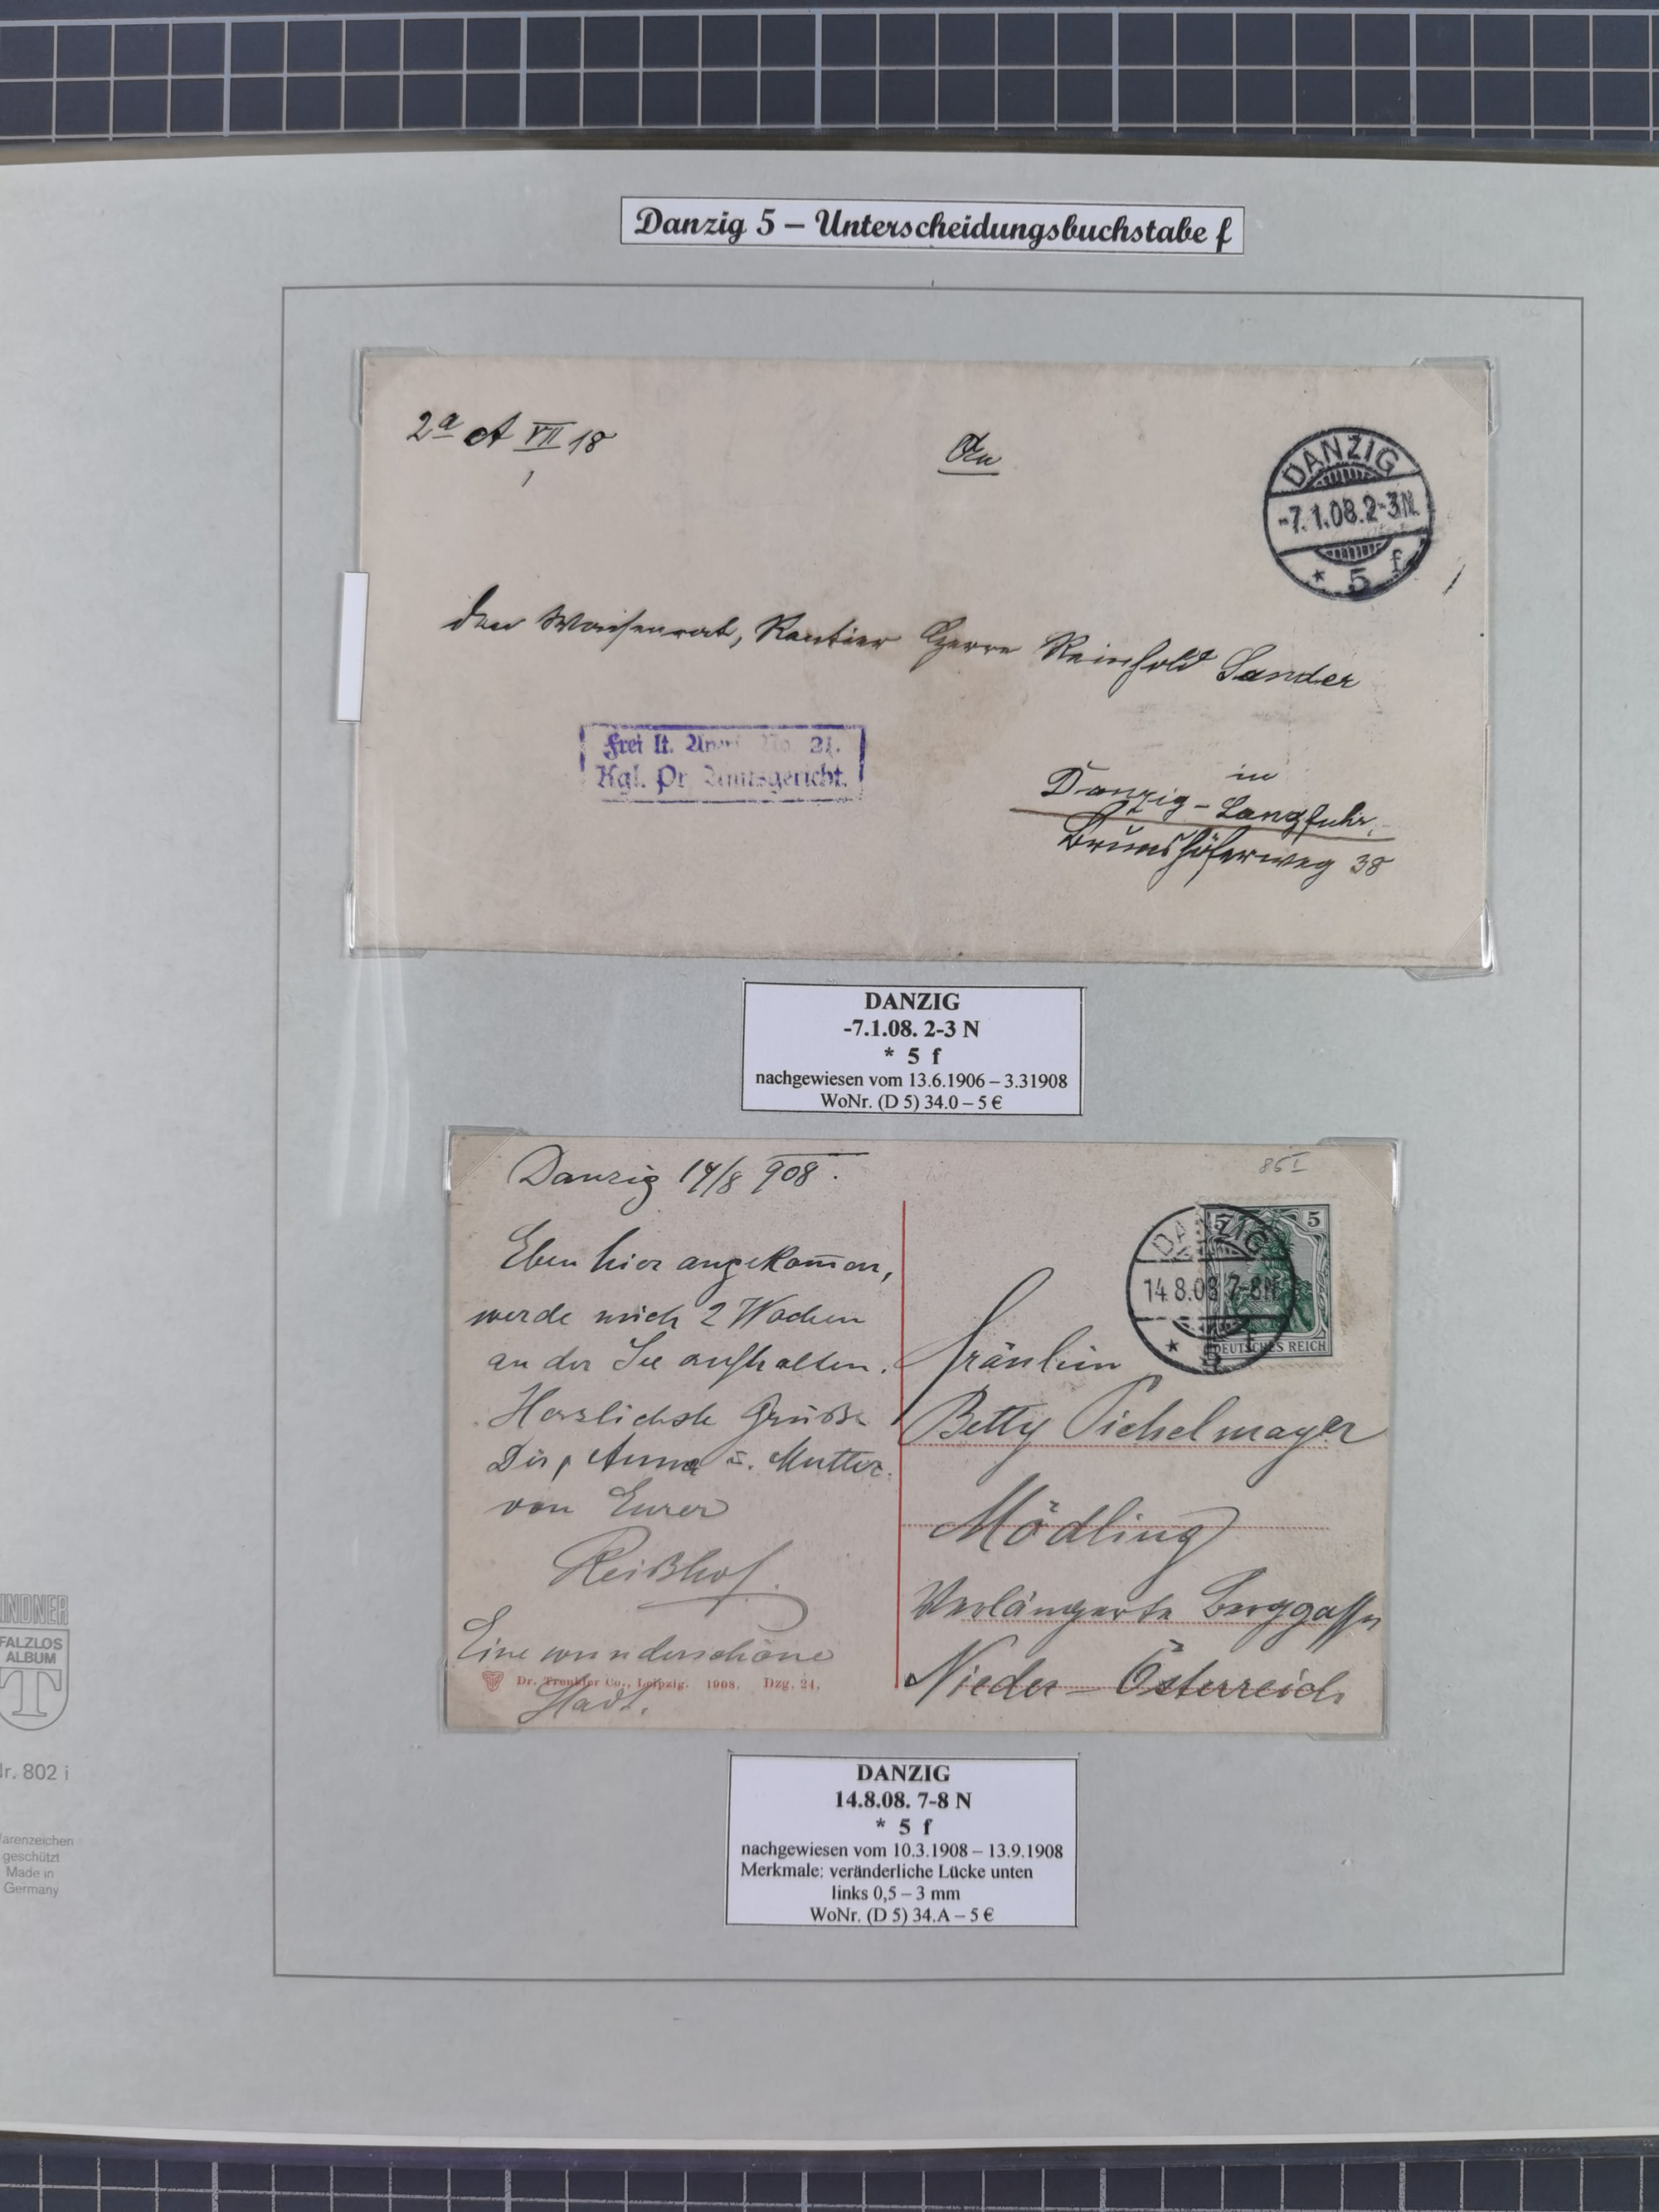 Danzig 5 – Unterscheidungsbuchstabe f
2a A VII 18
An
DANZIG
-7.1.08.2-3N.
* 5 f
den Waisenrat, Rentier Herrn Reinhold Sander
Frei lt. No. 21.
Kgl. Pr Amtsgericht.
in
Danzig-Langfuhr,
Brunshöferweg 38
DANZIG
-7.1.08. 2-3 N
* 5 f
nachgewiesen vom 13.6.1906 – 3.31908
WoNr. (D 5) 34.0 – 5 €
Danzig 14/8 908.
85 I
Eben hier angekom̄en,
werde mich 2 Wochen
an der See aufhalten.
Herzlichste Grüße
Dir, Anna u. Mutter.
von Eurer
Eine wunderschöne
Stadt.
Dr. Trenkler Co., Leipzig. 1908. Dzg. 24.
DANZIG
14.8.08 7-8N
* 5 f
5 5
DEUTSCHES REICH
Fräulein
Betty Pichelmayer
Mödling
Verlängerte Berggasse
Nieder-Österreich
DANZIG
14.8.08. 7-8 N
* 5 f
nachgewiesen vom 10.3.1908 – 13.9.1908
Merkmale: veränderliche Lücke unten
links 0,5 – 3 mm
WoNr. (D 5) 34.A – 5 €
INDNER
FALZLOS
ALBUM
T
Nr. 802 i
arenzeichen
geschützt
Made in
Germany